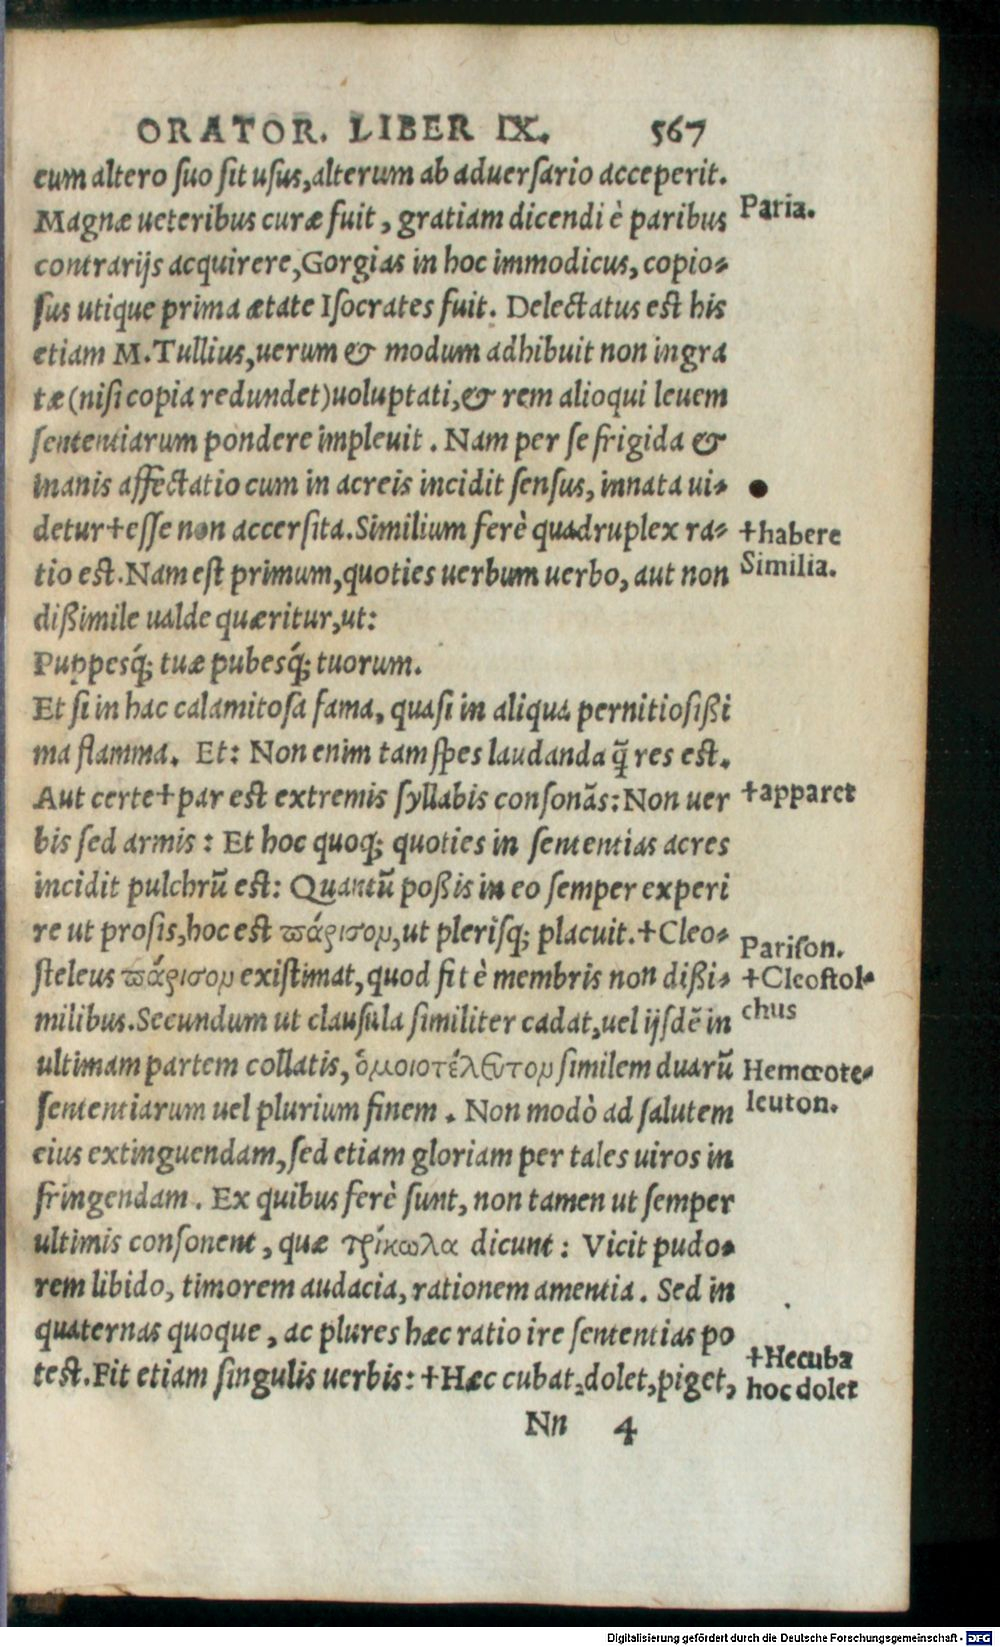 ORATOR. LIBER IX. 567
cum altero suo sit usus, alterum ab aduersario acceperit.
Magnæ ueteribus curæ fuit, gratiam dicendi è paribus
Paria.
contrarijs acquirere, Gorgias in hoc immodicus, copio-
sus utique prima ætate Isocrates fuit. Delectatus est his
etiam M. Tullius, uerum & modum adhibuit non ingra
tæ (nisi copia redundet) uoluptati, & rem alioqui leuem
sententiarum pondere impleuit. Nam per se frigida &
inanis affectatio cum in acreis incidit sensus, innata ui-
detur †esse non accersita. Similium ferè quadruplex ra-
†habere
tio est. Nam est primum, quoties uerbum uerbo, aut non
Similia.
dißimile ualde quæritur, ut:
Puppesq́; tuæ pubesq́; tuorum.
Et si in hac calamitosa fama, quasi in aliqua pernitiosißi
ma flamma. Et: Non enim tam spes laudanda q̃ res est.
Aut certe †par est extremis syllabis consonãs: Non uer
†apparet
bis sed armis: Et hoc quoq; quoties in sententias acres
incidit pulchrũ est: Quantũ poßis in eo semper experi
re ut prosis, hoc est πάρισον, ut plerisq; placuit. †Cleo-
Parison.
steleus πάρισον existimat, quod fit è membris non dißi-
†Cleostol-
milibus. Secundum ut clausula similiter cadat, uel ijsdẽ in
chus
ultimam partem collatis, ὁμοιοτέλευτον similem duarũ
Hemœote-
sententiarum uel plurium finem. Non modò ad salutem
leuton.
eius extinguendam, sed etiam gloriam per tales uiros in
fringendam. Ex quibus ferè sunt, non tamen ut semper
ultimis consonent, quæ τρίκωλα dicunt: Vicit pudo-
rem libido, timorem audacia, rationem amentia. Sed in
quaternas quoque, ac plures hæc ratio ire sententias po
test. Fit etiam singulis uerbis: †Hæc cubat, dolet, piget,
†Hecuba
hoc dolet
Nn 4
Digitalisierung gefördert durch die Deutsche Forschungsgemeinschaft - DFG